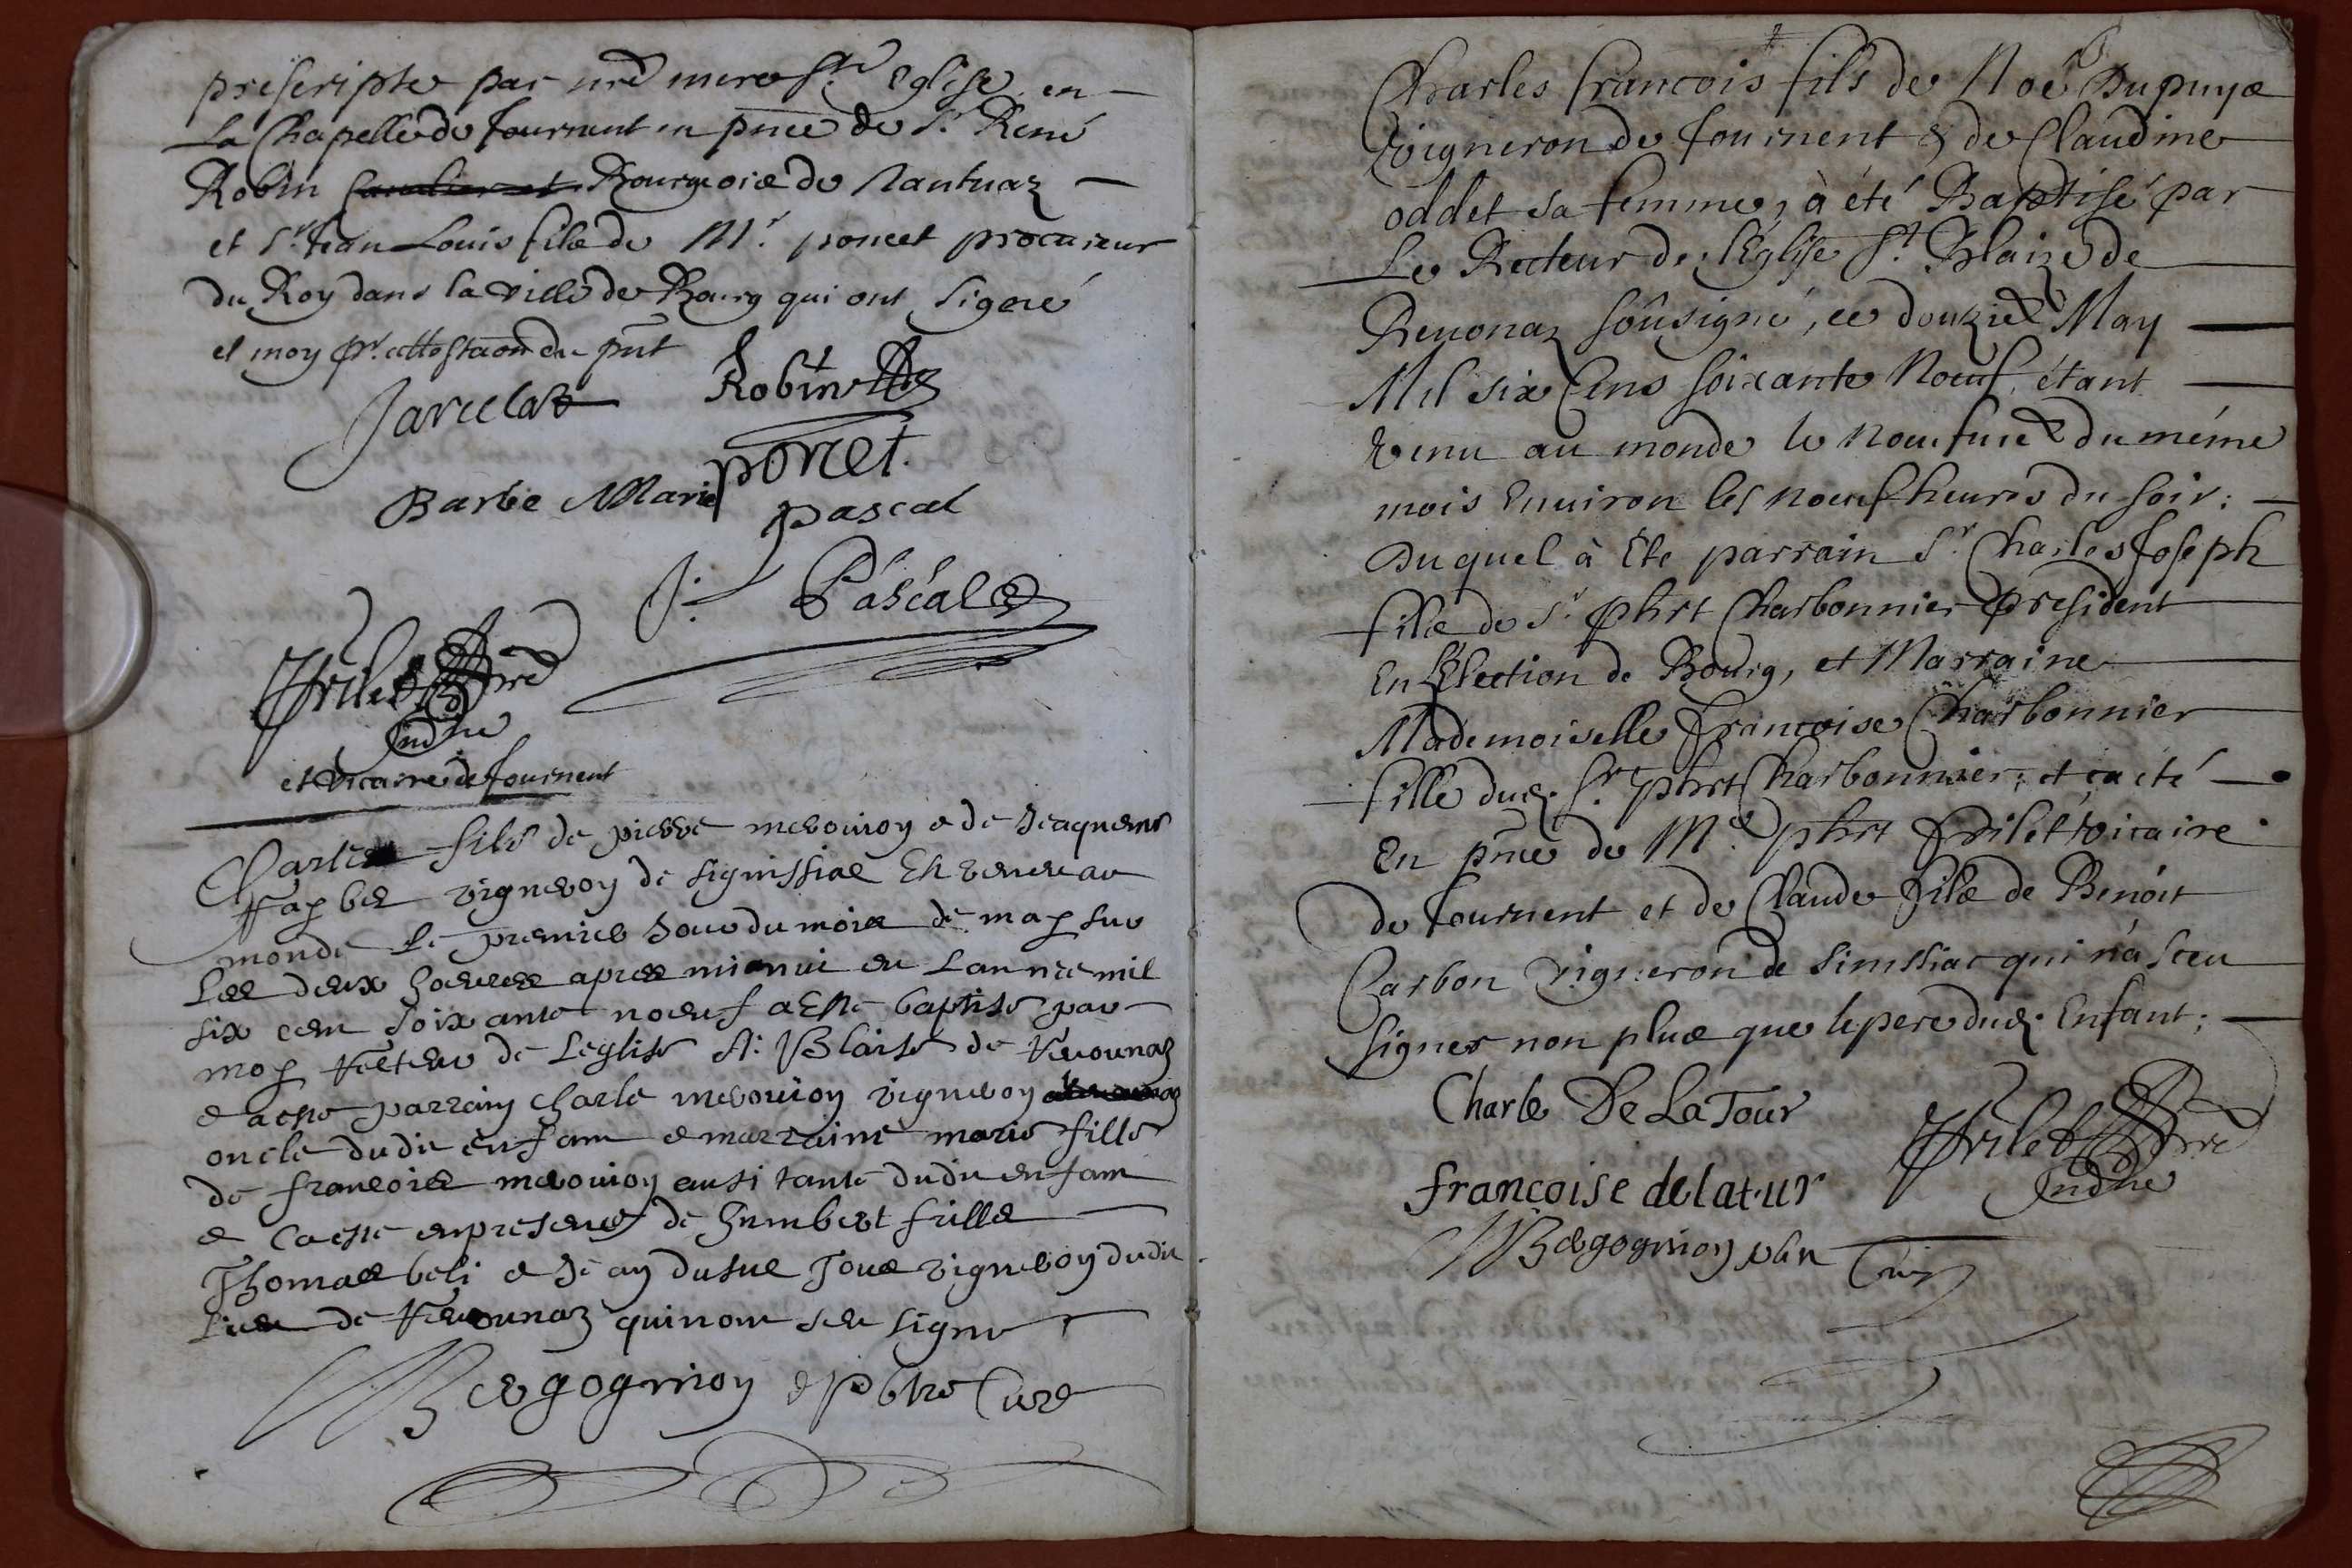 prescripte par nre mere Ste Eglise en
La Chapelle de Journent en pnce de Sr René
Robin Bourgois de Nantuaz
et Sr Jean Louis fils de Mr poncet procureur
du Roy dans la ville de Bourg qui ont signé
et moy pr attestaon du pnt
Jarcelat Robin
poncet.
Barbe Marie pascal
J. Pascal
frilet pre
Indne
et Vicaire de Journent
Charle fils de pierre mervoiron e de Jaquemе
vigneron de Est venu au
monde Le premier Jour du mois de may sur
Les deux heures apres minuit en Lannee mil
six cen soixante noeuf a Este baptise par
moy Recteur de Leglise St Blaise de Reuonaz
e a este parrain Charle vigneron
oncle dudit enfant e marraine marie fille
de francois ausi tante dudit enfant
e La este en presence de humbert fille
Thomas beli e Jean vigneron dudit
Lieu de Reuounaz qui nont seu signer
Bergognion pbtre Curé
Charles françois fils de Noë Dupuys
Vigneron de Journent & de Claudine
oddet sa femme, à été Baptisé par
Le Recteur de l'Eglise St Blaize de
Reuonaz soûsigné, ce douzie May
Mil six Cens soixante Noeuf, étant
Venu au monde le Noeufuie du même
mois Enuiron les Noeuf heures du soir;
Duquel à Ete parrain Sr Charles Joseph
fils de Sr phrt Charbonnier President
En l'Election de Bourg, et Marraine
Mademoiselle françoise Charbonnier
fille dud. Sr phrt Charbonnier; et ca été
En pnce de Me phrt frilet Vicaire
de Journent et de Claude fils de Benoit
Carbon Vigneron de Simssiac qui n'a sceu
Signer non plus que le pere dud. Enfant;
Charle De La Tour
frilet pre
Indne
françoise de latur
Bergognion pbr Curé